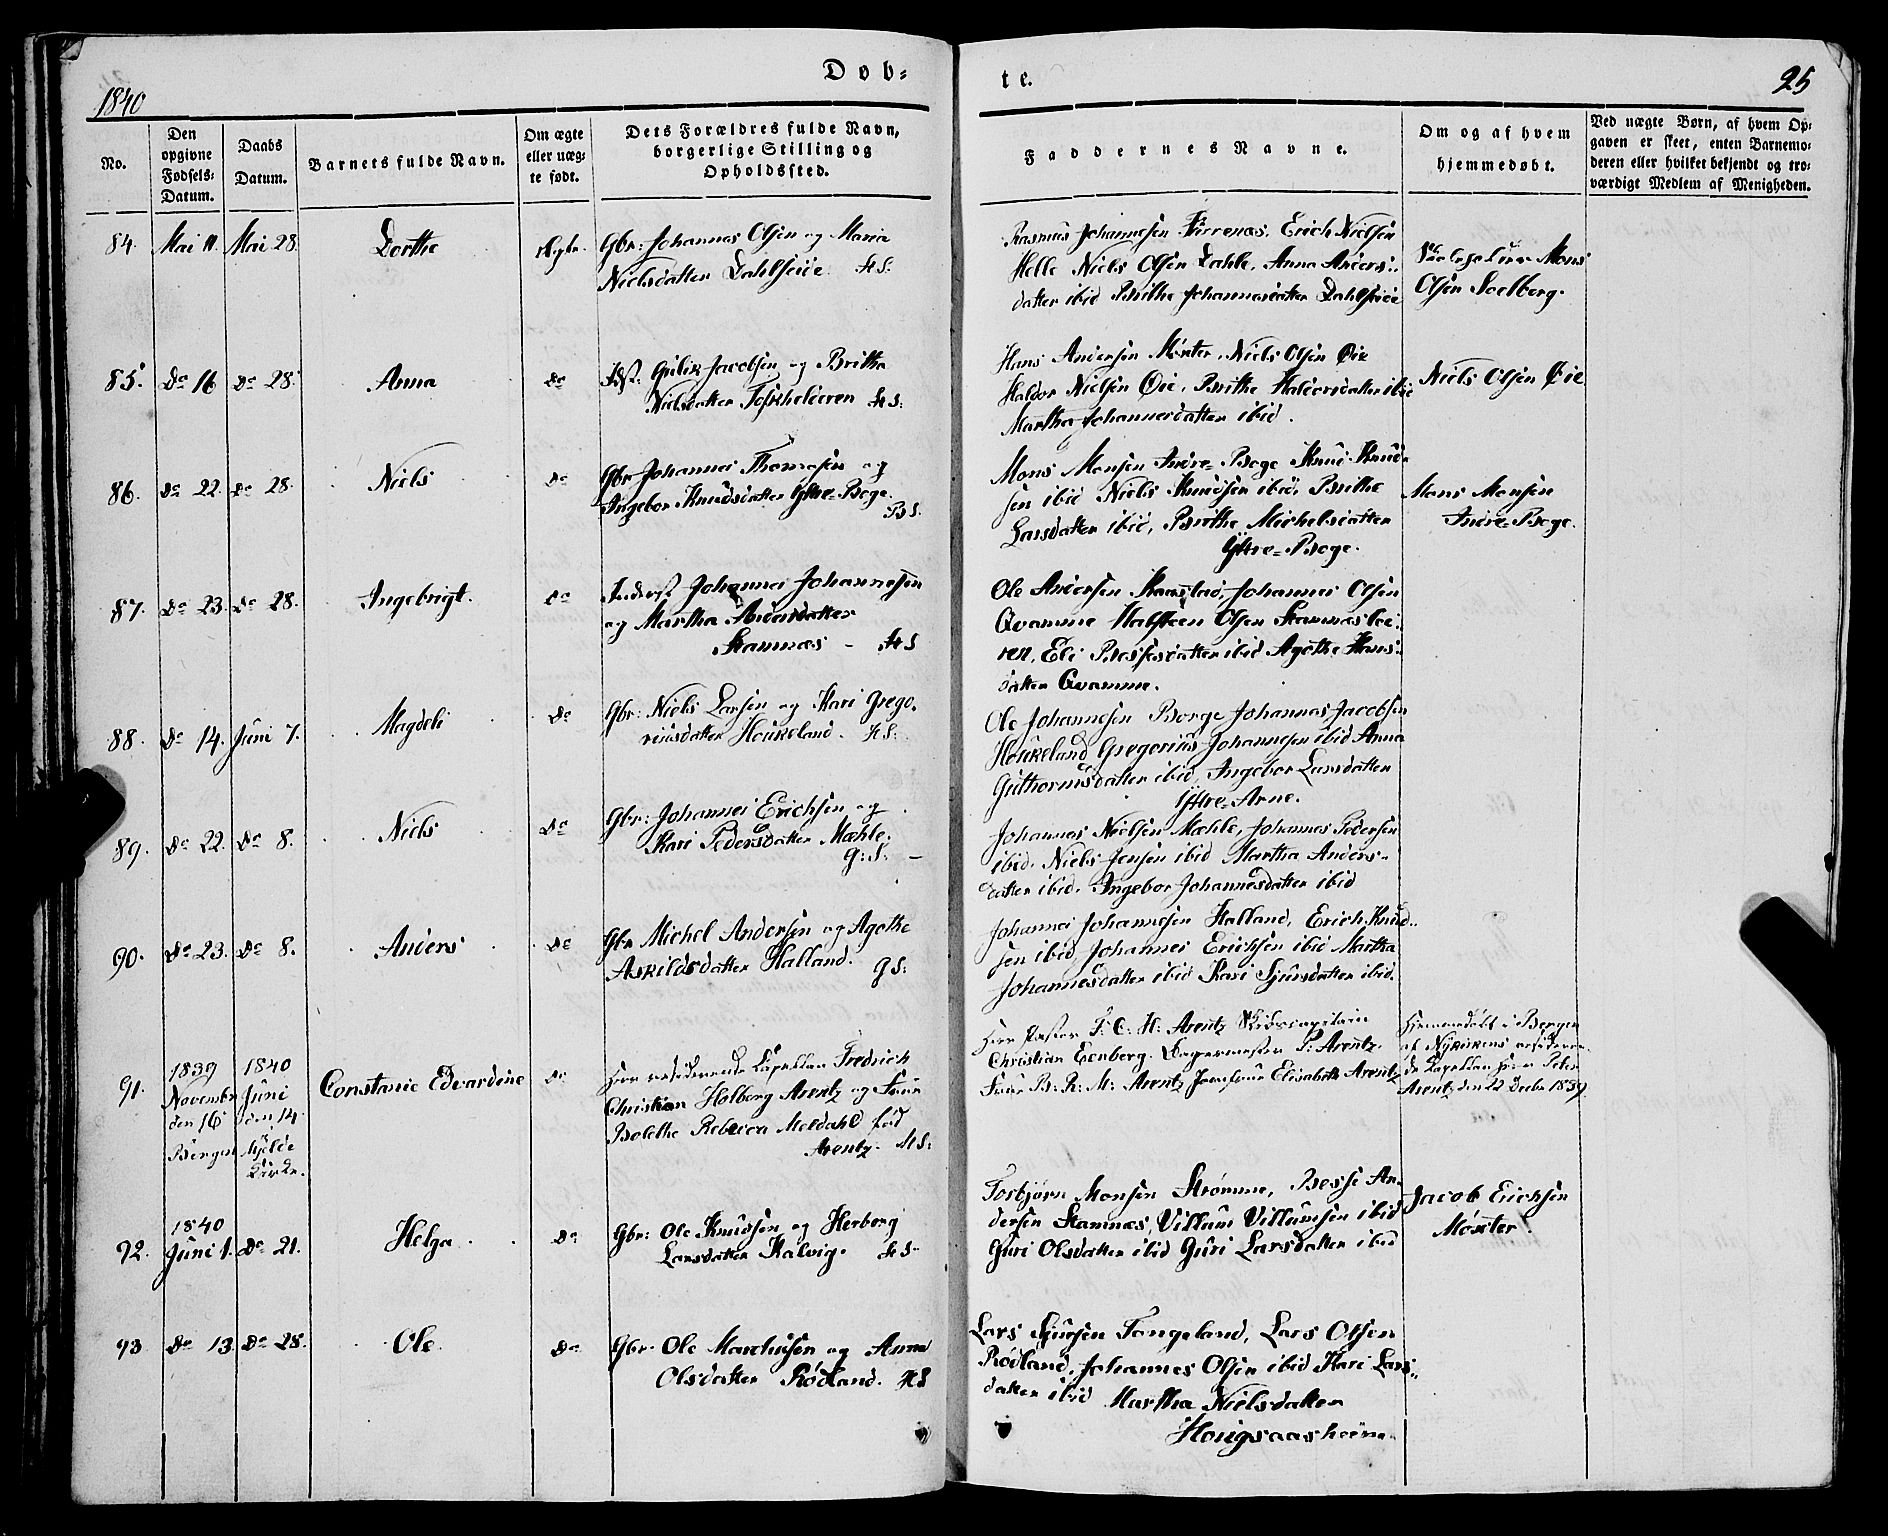 1840
Døb-
te.
25
No.
Den opgivne Fødsels-Datum.
Daabs Datum.
Barnets fulde Navn.
Om ægte eller uæg-te født.
Dets Forældres fulde Navn, borgerlige Stilling og Opholdssted.
Faddernes Navne.
Om og af hvem hjemmedøbt.
Ved uægte Børn, af hvem Op-gaven er skeet, enten Barnemo-deren eller hvilket bekjendt og tro-værdigt Medlem af Menigheden.
84. Mai 11. Mai 28. Dorthe
Gbr: Johannes Olsen og Maria
Nielsdatter Dahlseide. H S.
Rasmus Johannesen Erich Nielsen
Helle Niels Olsen Dahle, Anna Anders-
datter ibid Brithe Johannesdatter Dahlseide
Mons
Olsen
85. Do 16 Do 28. Anna Do
Jacobsen og Britha
Nielsdatter H S.
Hans Andersen Møster, Niels Olsen Øie
Haldor Nielsen Øie, Brithe Haldorsdatter ibid
Martha Johannesdatter ibid.
Niels Olsen Øie
86. Do 22. Do 28. Niels Do
Gbr Johannes Thomesen og
Ingebor Knudsdatter Yttre-Boge.
B S.
Mons Monsen Indre-Boge Knud Knud-
sen ibid Niels Knudsen ibid, Brithe
Larsdatter ibid, Brithe Michelsdatter
Yttre-Boge.
Mons Monsen
Indre-Boge.
87. Do 23. Do 28. Ingebrigt. Do
Inderst Johannes Johannesen
og Martha Andersdatter
Stamnæs - H S
Ole Andersen Johannes Olsen
Qvamme Halsteen Olsen Stamnæs
ren, Eli ibid Agothe Hans-
datter Qvamme.
88. Do 14. Juni 7. Magdeli Do
Gbr: Niels Larsen og Kari Grego-
riusdatter Houkeland. H S.
Ole Johannesen Borge Johannes Jacobsen
Houkeland Gregorius Johannesen ibid Anna
Guthormsdatter ibid, Ingebor Larsdatter
Yttre-Arne.
89. Do 22. Do 8. Niels Do
Gbr: Johannes Erichsen og
Kari Pedersdatter Mæhle.
G: S: -
Johannes Nielsen Mæhle, Johannes Pedersen
ibid. Niels Jensen ibid Martha Anders-
datter ibid. Ingebor Johannesdatter ibid
90. Do 23. Do 8. Anders Do
Gbr Michel Andersen og Agothe
Askildsdatter Halland. G S.
Johannes Johannesen Halland, Erich Knud-
sen ibid, Johannes Erichsen ibid Martha
Johannesdatter ibid Kari Sjursdatter ibid.
91.
1839
November
den 16
Bergen
1840
Juni
den 14
Mjelde
Kirke.
Constanie Edvardine Do
Herr residerende Capellan Fredrich
Christian Holberg Arentz og Frue
Bolethe Rebecca Meldahl fød
Arentz. H S:
Herr Pastor F: C: H: Arentz Skibscapitain
Christian P: Arentz.
Frue B: R: M: Arentz Jomfrue Elisabeth Arentz
Hjemmedøbt i Bergen
af Nykirkens residere-
de Capellan Herr Peter
Arentz den 22 Decbr 1839.
92.
1840
Juni 1. Do 21. Helga Do
Gbr: Ole Knudsen og Herborg
Larsdatter Kalvig. H S.
Torbjørn Monsen Strømme, Besse An-
dersen Stamnæs, Villum Villumsen ibid
Guri Olsdatter ibid Guri Larsdatter ibid
Jacob Erichsen
Møster
93 Do 13 Do 28. Ole Do
Gbr. Ole og Anna
Olsdatter Rødland. H S
Lars Sjursen Tangeland, Lars Olsen
Rødland, Johannes Olsen ibid Kari Lars-
datter ibid Martha Nielsdatter